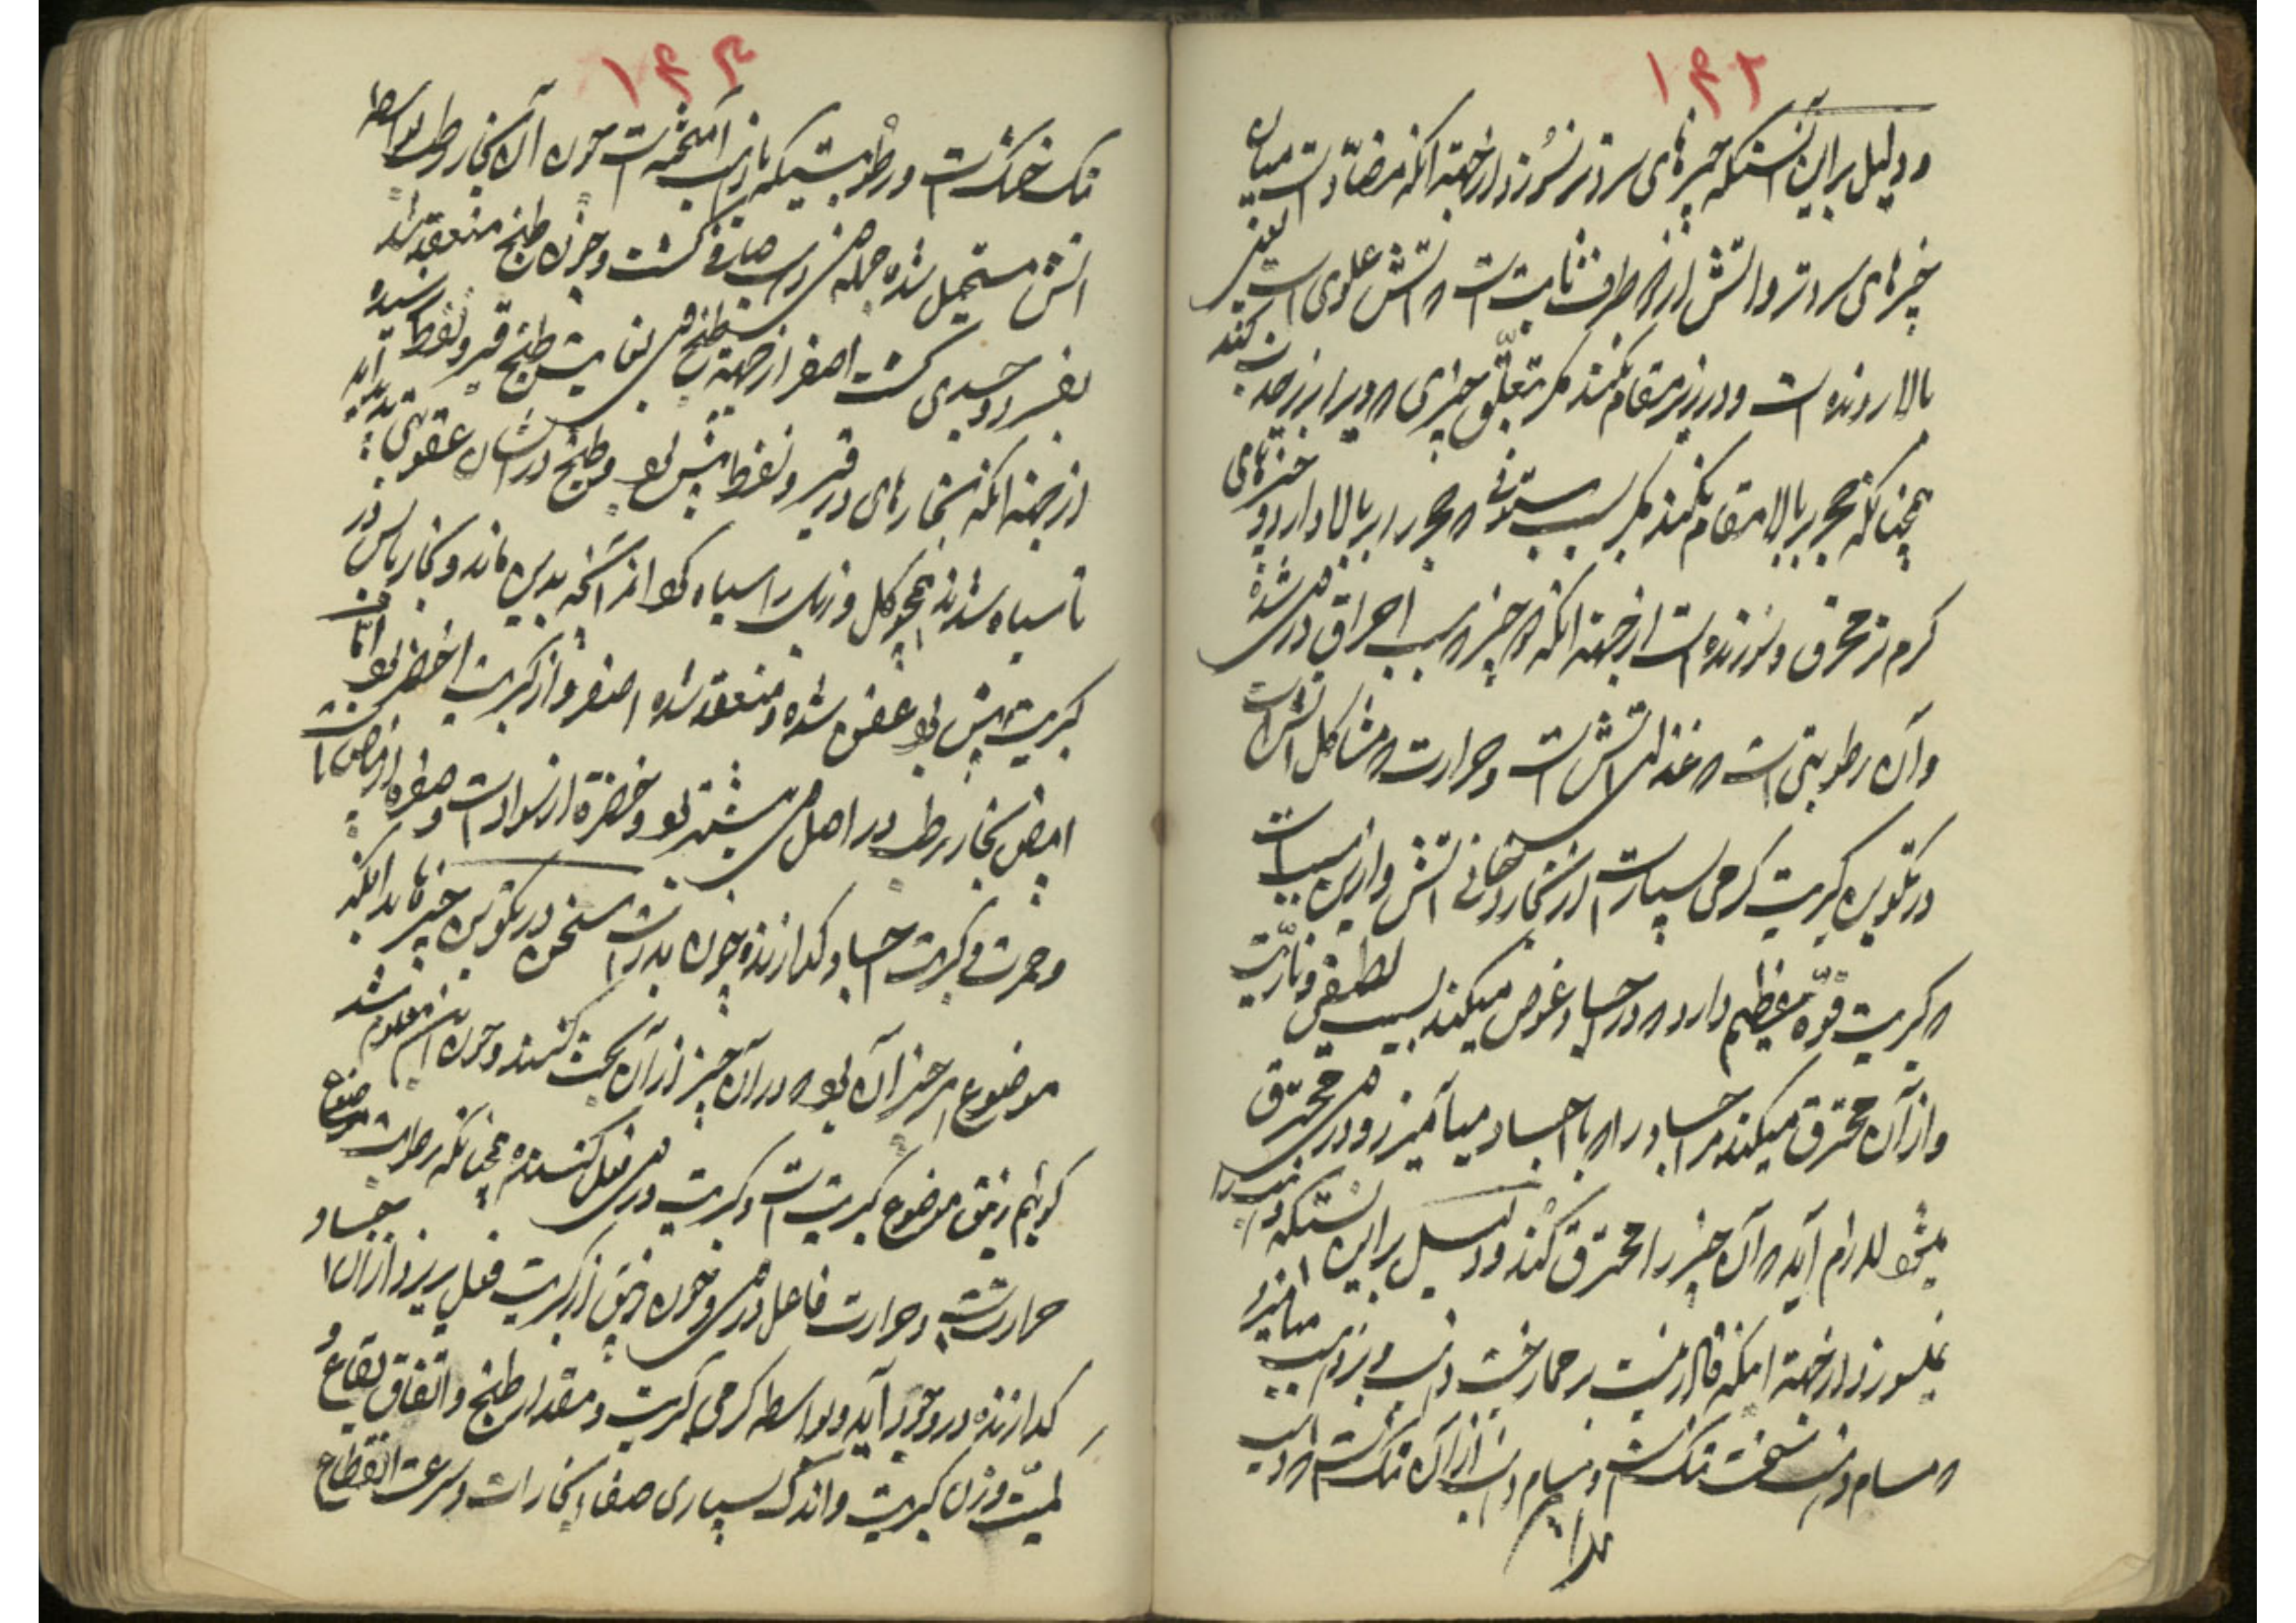 ۱۴۲
و دلیل براین آنستکه چیزهای سرد تر نسوزد ازجهة انکه مضادّتست میان
چیزهای سرد تر و اتش از هر طرف ثابت است و اتش علوی است یعنی
بالا رونده است و در زیر مقام نکند مکر بتعلّق چیزی که ویرا زیر جذب کند
همچنانکه حجر ببالا مقام نکند مکر بسبب ستونی که حجر را بر بالا دارد و چیزهای
کرم تر محرق و سوزنده است ازجهة انکه هر چیز که سبب احراق در وی شده
و آن رطوبتی است که غذای اتش است و حرارت که مشاکل اتش است
در تکوین کبریت کرمی بسیارست از بخار دخانی اتش و ازین سبب است
که کبریت قوّة عظیم دارد که در اجساد غوص میکند بسبب لطیفی و ناریّت
و از آن محترق میکند مر اجساد را که با اجساد میآمیزد و در وی محترق
میشود لازم آید که آن چیز را محترق کند و دلیل براین آنستکه ذهب را
نمیسوزد ازجهة انکه قادر نیست بر ممازجت ذهب و بذهب نیامیزد
که مسام ذهب سخت تنک است و مسام ذهب از آن تنک است که ذهب
۱۴۳
تنک خشکست و رطوبتیکه بازان آمیخته است چون آن بخار رطب بواسطه
اتش مستحیل شده جمله وی ذهب صافی کشت و چون طبخ منعقد شد
بفر و جسدی کشت اصفر ازجهة طبخ وی بغایت طبخ قیر و نفط رسیده
ازجهة انکه بخارهای در قیر و نفط بیش بود و طبخ در ایشان عقوبتی پدید آید
تا سیاه شدند همچو کل و زنک سیاه که از آنچه بدین ماند و بخار یابس در
کبریت بیش بود عفن شده و منعقد شده اصفر و از کبریت اخضر بود امّا
ابیض بخار رطب در اصل وی بیشتر بود و خضرة از سوادست و صفرة از بیاض تا
و حمرت فی کبریت اجساد کدازنده چون بدرست سخن در تکوین چیزها بدانکه
موضوع هر چیز آن بود که در آن چیز از آن بحث کنند و چون این معلوم شد
کوئیم زیبق موضوع کبریت است و کبریت در وی فعل کننده همچنانکه رطوبت موضوع
حرارتست و حرارت فاعل در وی و چون زیبق از کبریت فعل پذیرد از آن اجساد
کدازنده در وجود آید و بواسطه کرمی کبریت و مقدار طبخ و اتفاق بقاع و
کمیّت وزن کبریت و اندک بسیاری صفاء بخارات و سرعت انقطاع